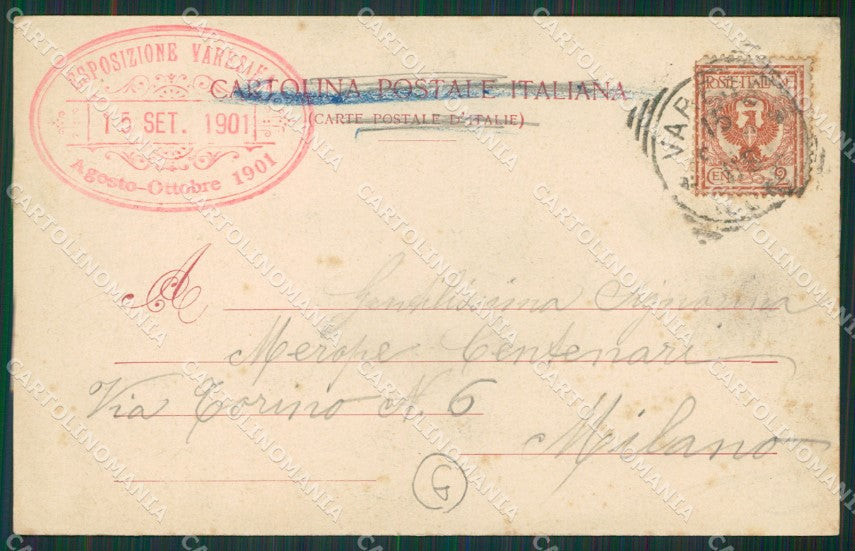 ESPOSIZIONE VARESINA
15 SET. 1901
Agosto-Ottobre 1901
CARTOLINA POSTALE ITALIANA
(CARTE POSTALE D'ITALIE)
POSTE ITALIANE
CENT. 2
VAR
15
A Gentilissima Signorina
Merope Centenari
Via Torino N. 6
Milano
CARTOLINOMANIA